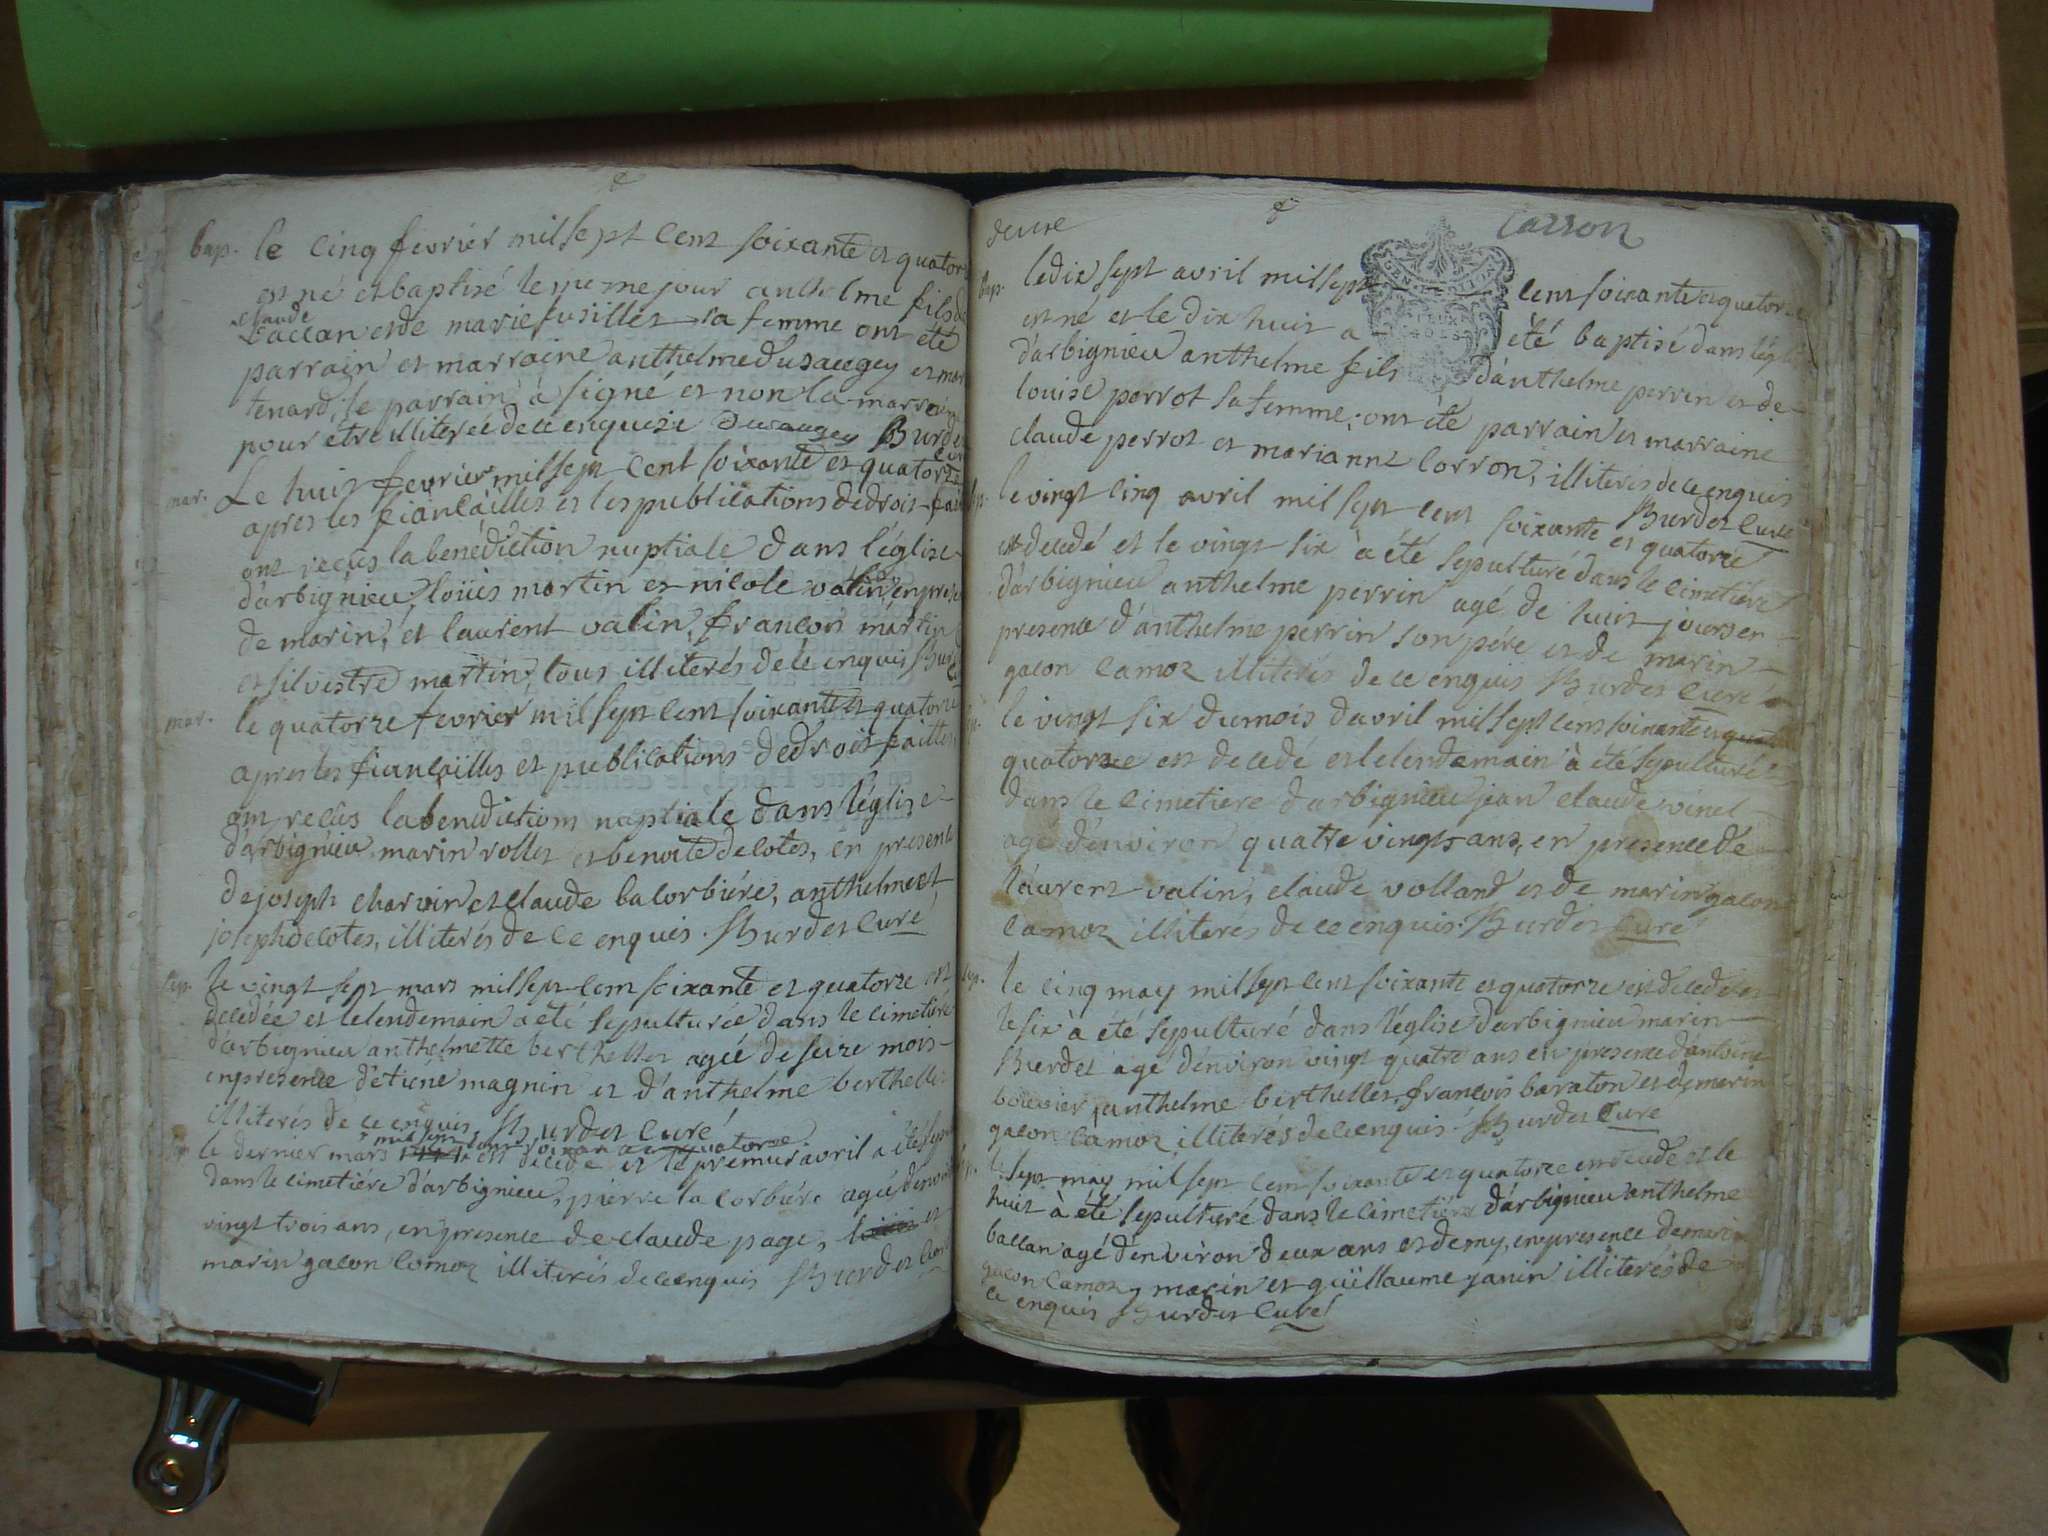 bap. le cinq fevrier mil sept cent soixante et quatorze
est né et baptisé le meme jour anthelme fils de
claude
ballan et de marie fusillet sa femme ont été
parrain et marraine anthelme dusaugey et
tenard, le parrain à signé et non la marraine
pour être illiterée de ce enquise Dusaugey Burdet
curé
mar. Le huit fevrier mil sept cent soixante et quatorze
apres les fiançailles et les publications de droit
ont recûs la benediction nuptiale dans l'église
d'arbignieu, loüis martin et nicole valin, en
de marin, et laurent valin, françois martin
et silvestre martin, tous illiterés de ce enquis Burdet
mar. le quatorze fevrier mil sept cent soixante et quatorze
apres les fiançailles et publications de droit faittes,
ont recûs la benediction nuptiale dans l'église
d'arbignieu marin rollet et benoite decotes, en presence
de joseph charvin et claude la corbiére, anthelme et
joseph decotes, illiterés de ce enquis. Burdet Curé
sep. le vingt sept mars mil sept cent soixante et quatorze est
decedée et le lendemain a été sepulturée dans le cimetiére
d'arbignieu anthelmette berthellet agée de seize mois
en presence d'etiéne magnin et d'anthelme berthellet
illiterés de ce enquis. Burdet Curé
mil sept cent soixante quatorze
le dernier mars est decedé et le premier avril a été
dans le cimetiére d'arbignieu, pierre la corbiére agé
vingt trois ans, en presence de claude page, et
marin gacon camoz illiterés de ce enquis Burdet Curé
carron
bap. le dix sept avril mil sept cent soixante et quatorze
est né et le dix huit a été baptisé dans l'église
d'arbignieu anthelme fils d'anthelme perrin et de
louise perrot sa femme; ont été parrain et marraine
claude perrot et marianne corron, illiterés de ce enquis
Burdet Curé
le vingt cinq avril mil sept cent soixante et quatorze
est decedé et le vingt six à été sepulturé dans le cimetiére
d'arbignieu anthelme perrin agé de huit jours en
presence d'anthelme perrin son pére et de marin
gacon camoz illiterés de ce enquis Burdet Curé
le vingt six du mois d'avril mil sept cent soixante et
quatorze est decedé et le lendemain à été sepulturé
dans le cimetiere d'arbignieu jean claude vinet
agé d'environ quatre vingts ans, en presence de
laurent valin, claude volland et de marin gacon
camoz illiterés de ce enquis. Burdet Curé
sep. le cinq may mil sept cent soixante et quatorze est decedé et
le six à été sepulturé dans l'église d'arbignieu marin
Burdet agé d'environ vingt quatre ans en presence d'antoine
bouvier, anthelme berthellet, françois baraton et de marin
gacon camoz illiterés de ce enquis. Burdet Curé
le sept may mil sept cent soixante et quatorze est decedé et le
huit à été sepulturé dans le cimetiére d'arbignieu anthelme
ballan agé d'environ deux ans et demy, en presence de marin
gacon camoz, marin et guillaume janin illiterés de
ce enquis Burdet Curé